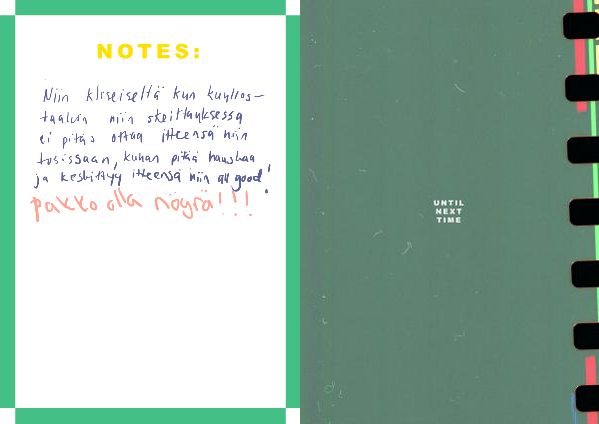 NOTES:
Niin kliseiseltä kun kuullos-
taakin niin skeittauksessa
ei pitäs ottaa itteensä niin
tosissaan, kunhan pitää hauskaa
ja keskittyy itteensä niin all good!
pakko olla nöyrä!!!
UNTIL
NEXT
TIME